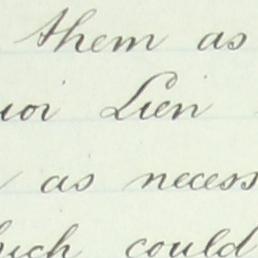 them as
uoi Lien
as necess
hich could